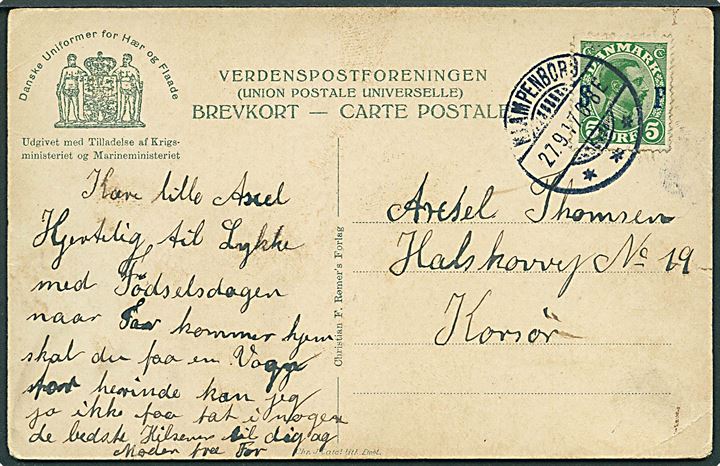 Danske Uniformer for Hær og Flaade
Udgivet med Tilladelse af Krigs-
ministeriet og Marineministeriet
VERDENSPOSTFORENINGEN
(UNION POSTALE UNIVERSELLE)
BREVKORT — CARTE POSTALE
KLAMPENBORG
27.9.17
DANMARK
5 ØRE 5
Kære lille Axel
Hjertelig til Lykke
med Fødselsdagen
naar Far kommer hjem
skal du faa en Vogn
herinde kan jeg
jo ikke faa fat i nogen
de bedste Hilsener til dig og
Moder fra Far
Christian F. Rømer's Forlag
Axel Thomsen
Halskovvej No 19
Korsør